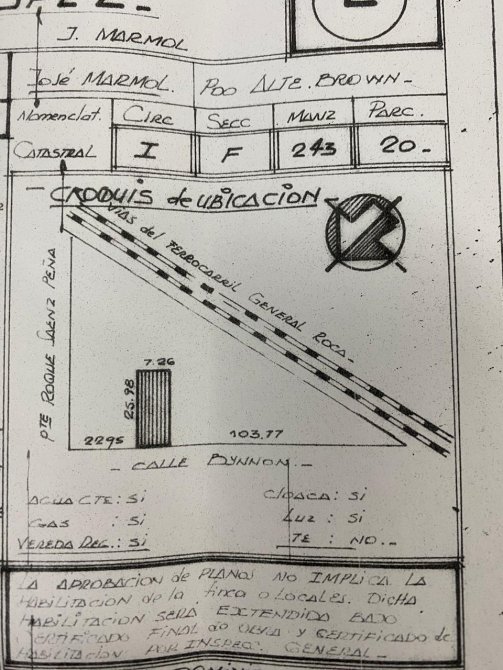 J. MARMOL
José MARMOL. PDO ALTE. BROWN_
Nomenclat. CIRC SECC MANZ PARC.
CATASTRAL I F 243 20_
CROQUIS de UBICACION
VIAS del FERROCARRIL GENERAL ROCA_
PTE ROQUE SAENZ PEÑA
7.26
25.98
2295 103.77
_ CALLE BYNNON _
AGUA CTE: Si CLOACA: Si
GAS : Si LUZ : Si
VEREDA REG.: Si TE : NO._
LA APROBACION de PLANOS NO IMPLICA LA
HABILITACION de la finca o LOCALES. DICHA
HABILITACION SERA EXTENDIDA BAJO
CERTIFICADO FINAL de OBRA y CERTIFICADO de
HABILITACION POR INSPEC. GENERAL_